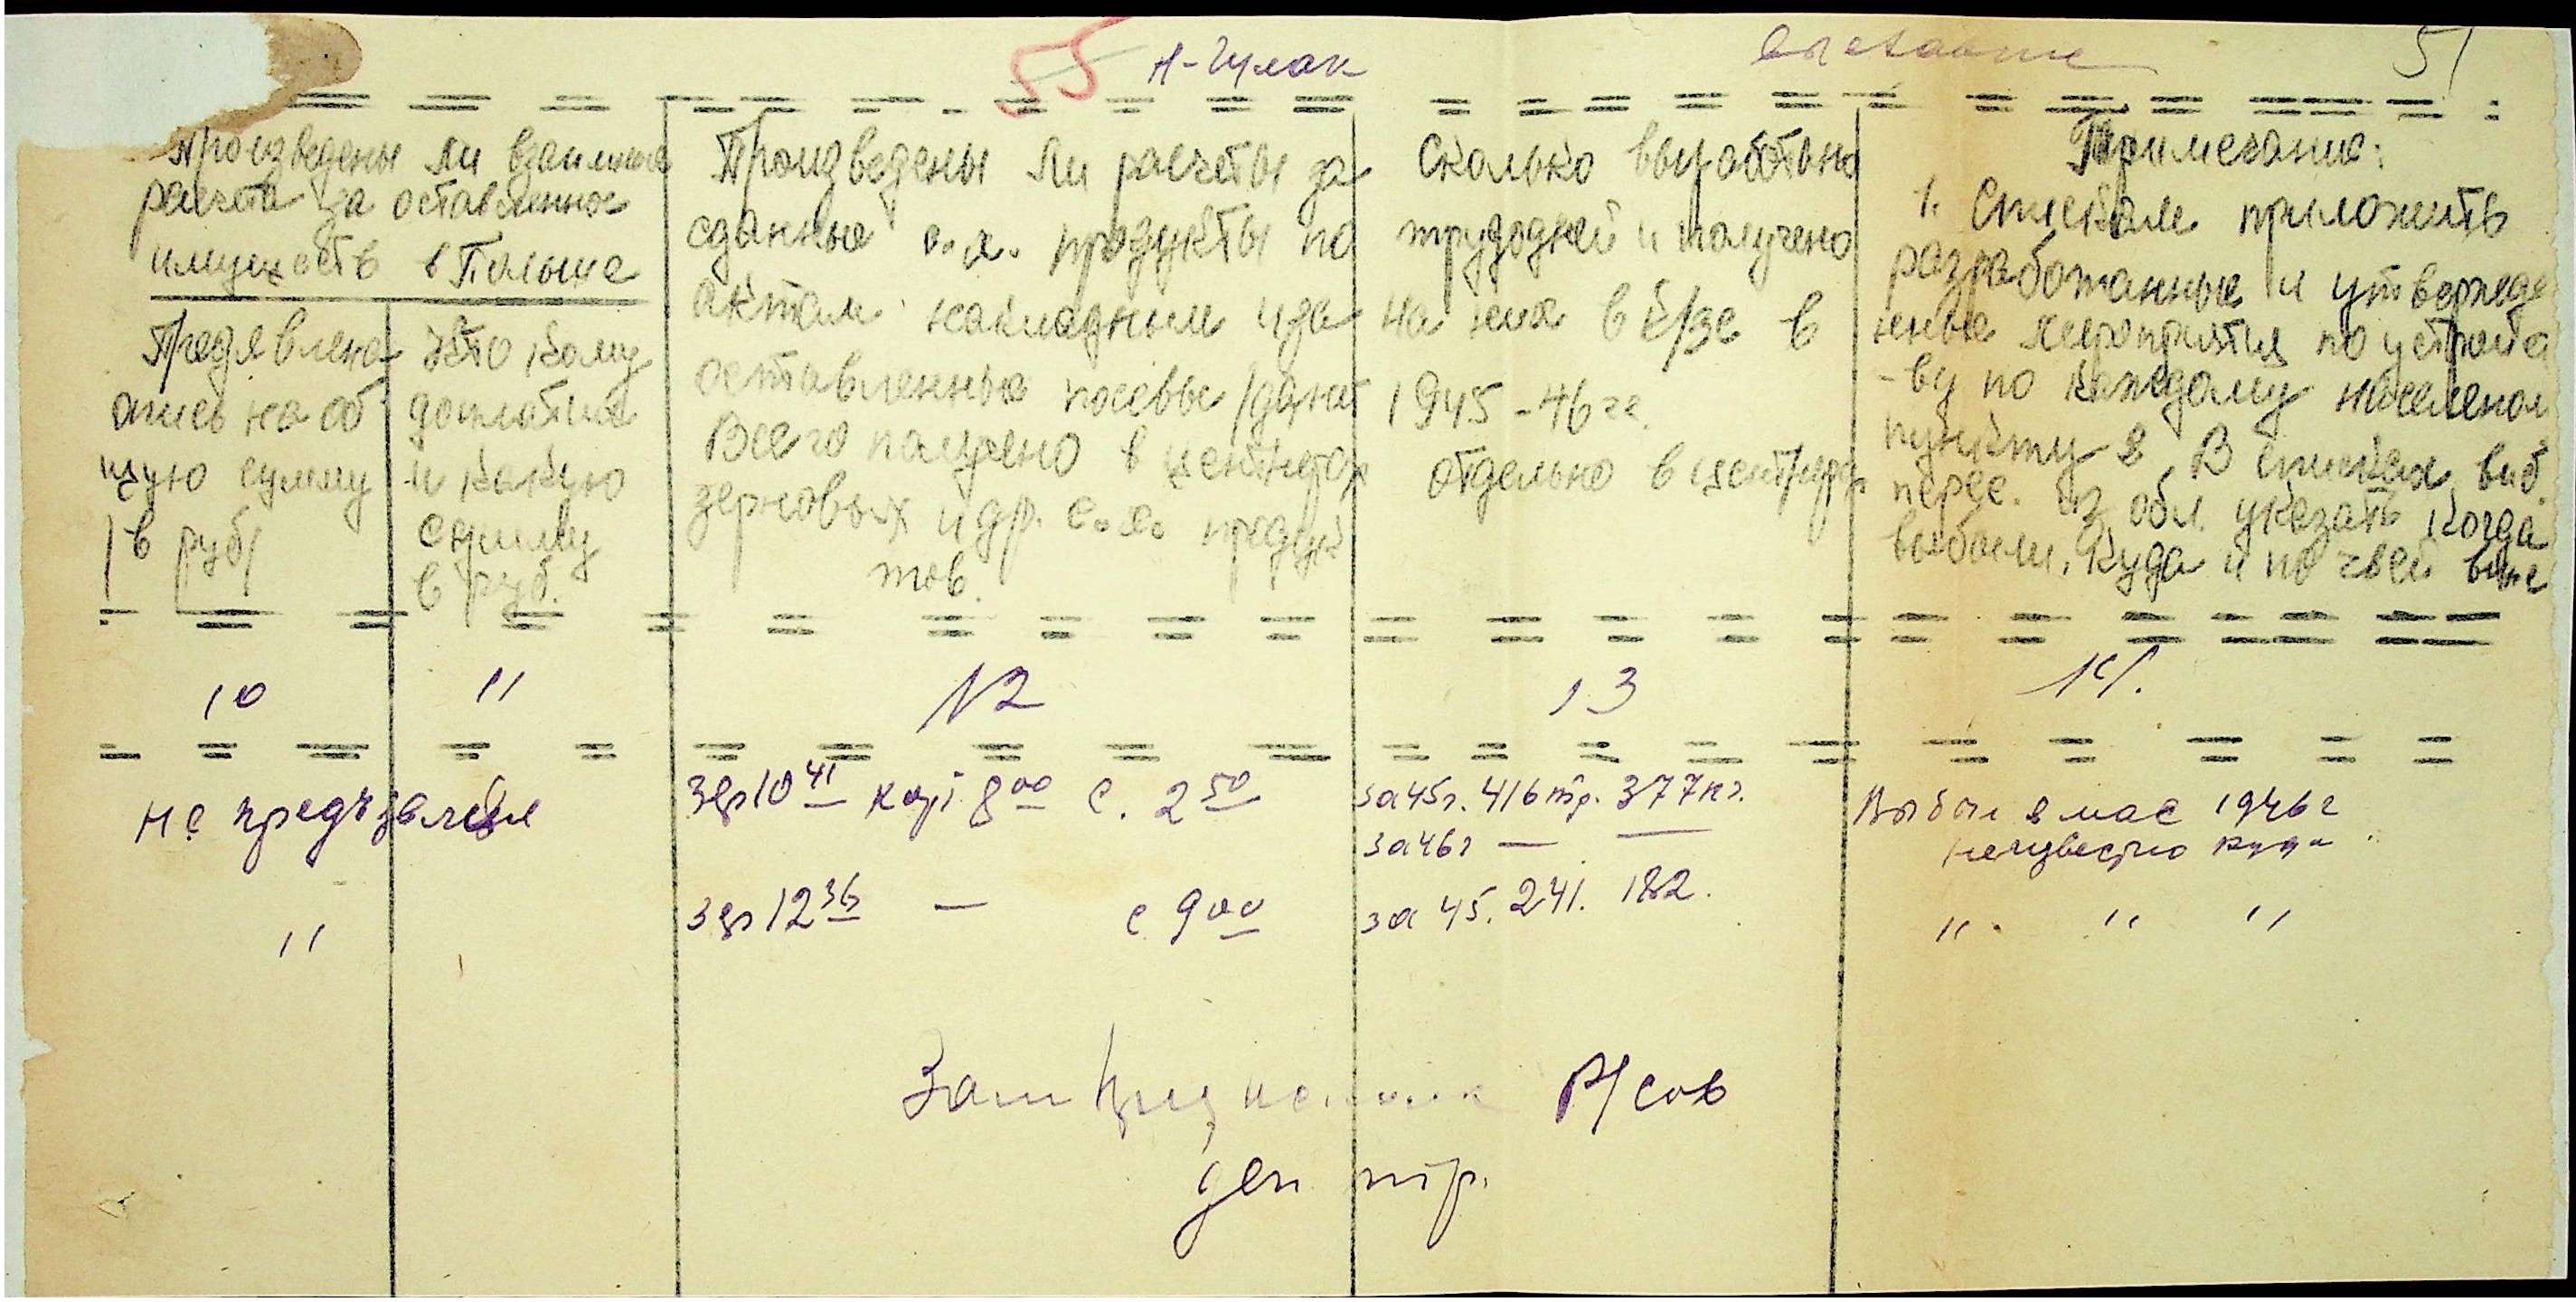 55 А-Чулак
51
Произведены ли взаимные
расчеты за оставленное
имуществ в Польше
Предявлена
опись на об
щую сумму
/в руб/
Кто кому
доплатил
и какую
сумму
в руб.
Произведены ли расчеты за
сданные с.х. продукты по
актам накладным и за
оставленные посевы /дано
Всего получено в центнерах
зерновых и др. с.х. продук
тов.
Сколько выработано
трудодней и получено
на них в к/зе в
1945-46 гг.
отдельно в центнерах
Примечание:
1. Спискам приложить
разработанные и утвержде
нные мероприятия по устройс
-ву по каждому населеном
пункту 2. В списках выб.
перес. из обл. указать когда
выбыли, куда и по чьей вине
10 11 12 13 14.
Не предъявлял
зер 10 41 кар. 8 00 с. 2 50
за 45г. 416 тр. 377 кг.
за 46г — —
Выбыл в мае 1946 г
неизвестно куда
" зер 12 36 — с 9 00 за 45. 241. 182. " " "
Зам Р/сов
деп. тр.